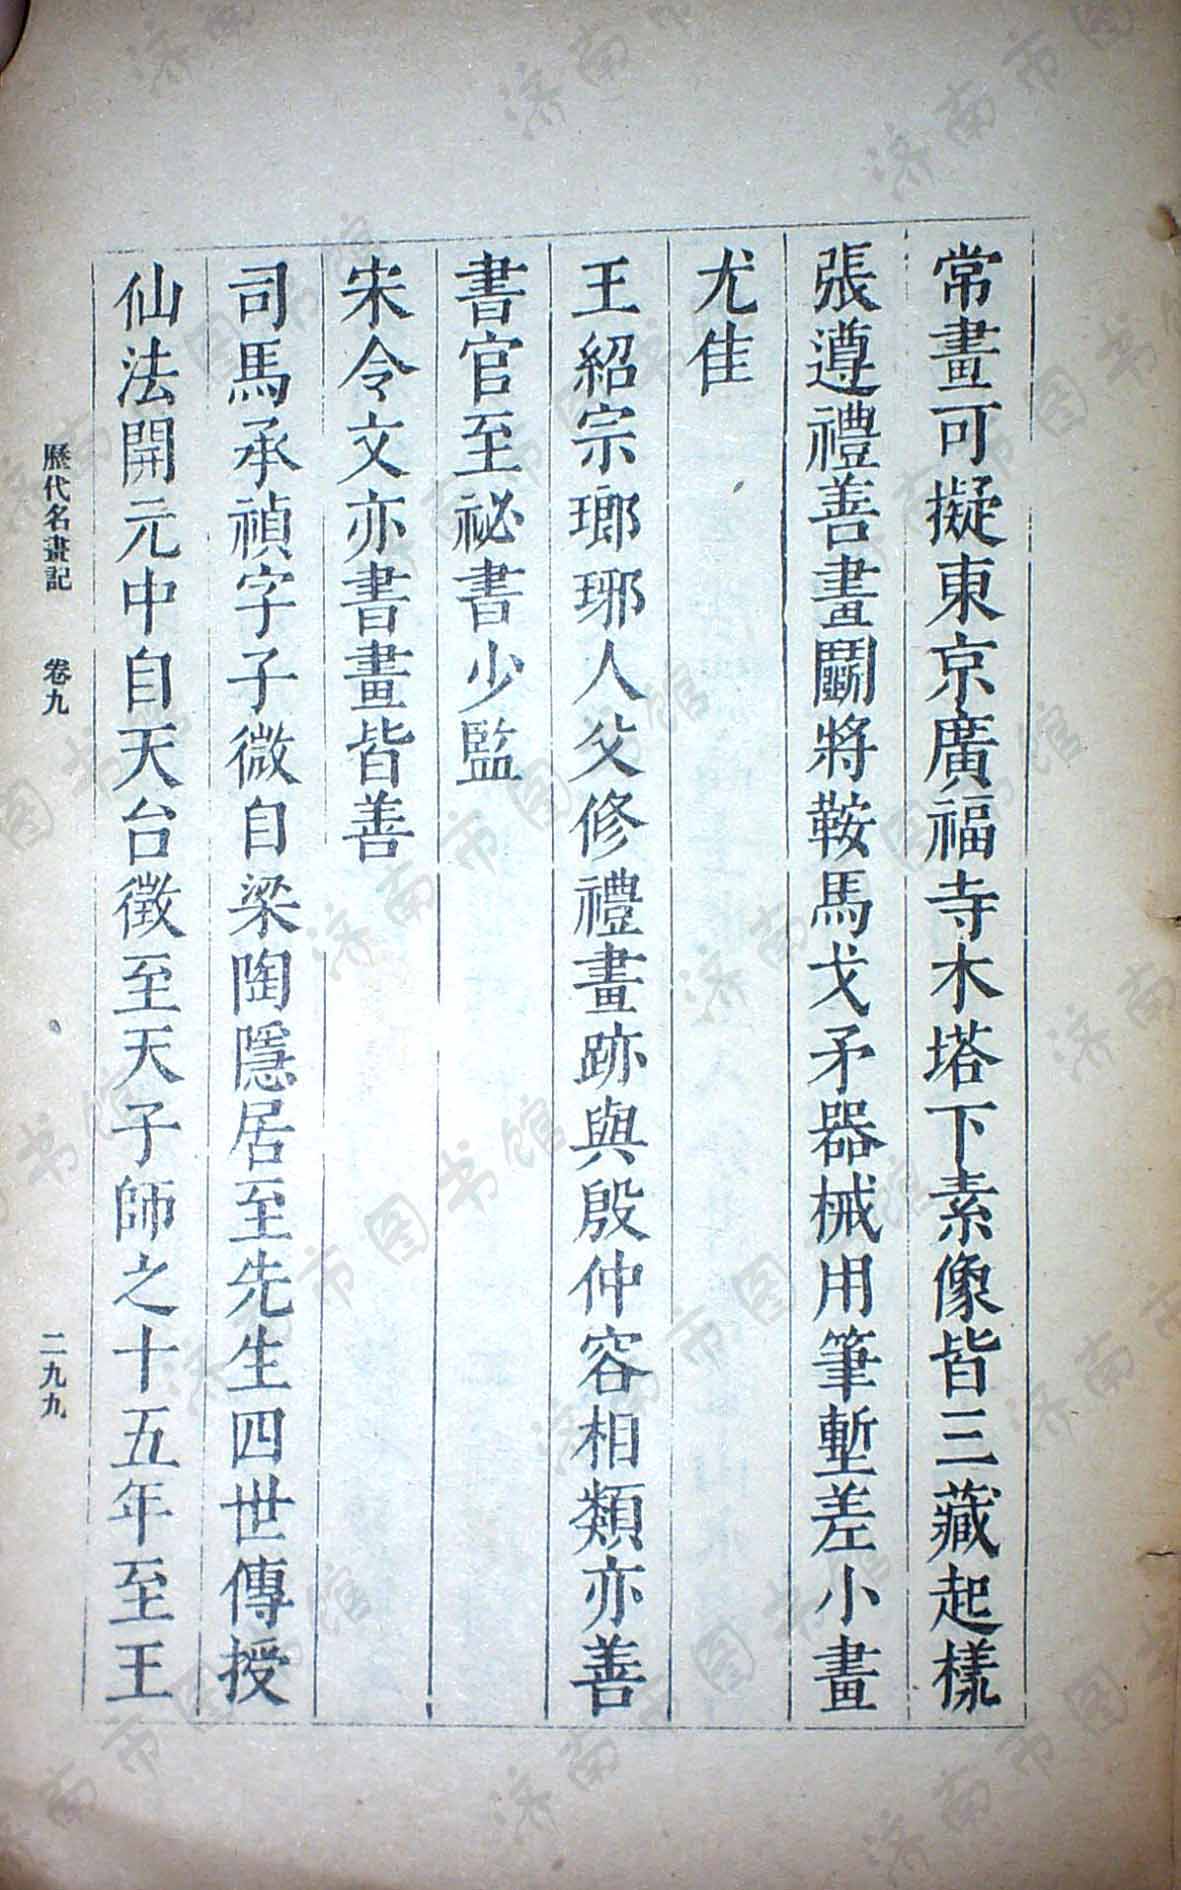 常畫可擬東京廣福寺木塔下素像皆三藏起樣
張遵禮善畫鬭將鞍馬戈矛器械用筆塹差小畫
尤佳
王紹宗瑯琊人父修禮畫跡與殷仲容相類亦善
書官至祕書少監
宋令文亦書畫皆善
司馬承禎字子微自梁陶隱居至先生四世傳授
仙法開元中自天台徵至天子師之十五年至王
歷代名畫記 卷九 二九九
济南市图书馆